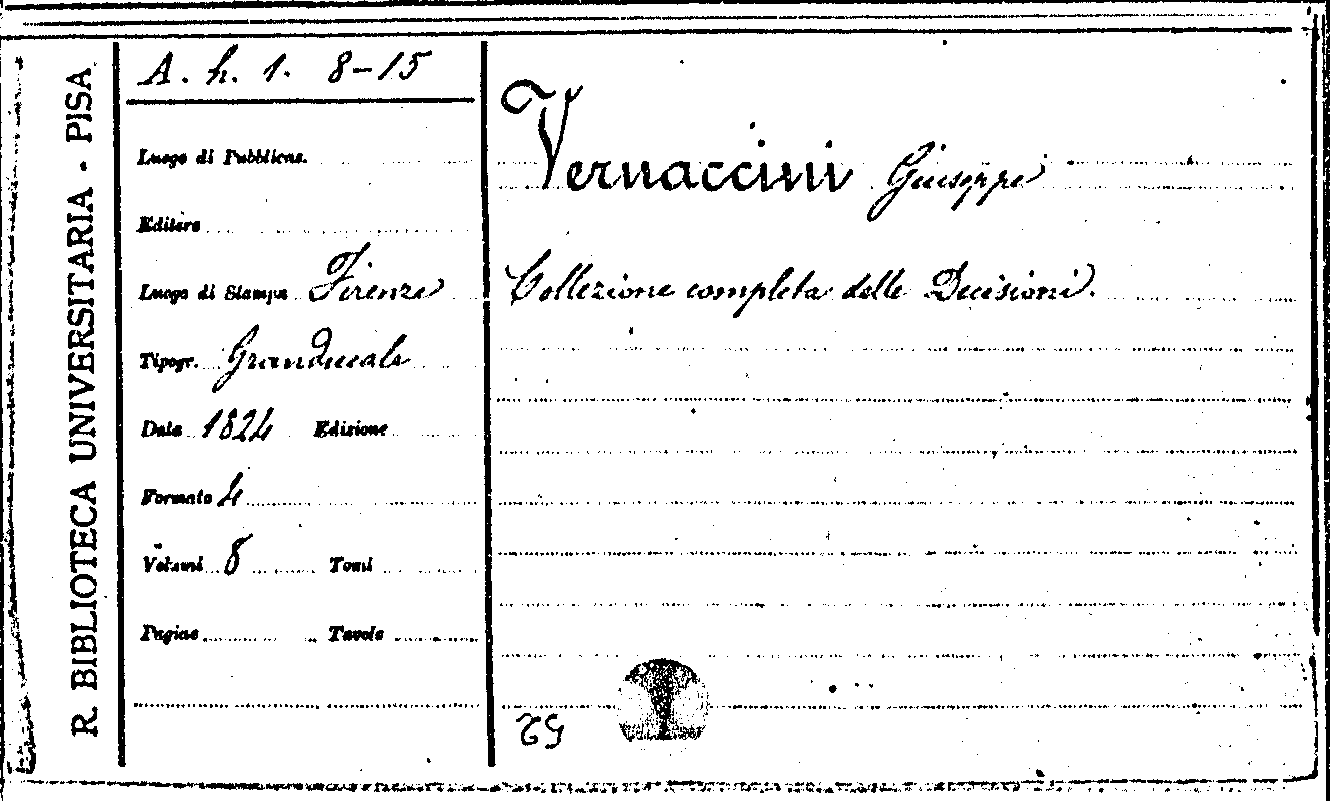 R. BIBLIOTECA UNIVERSITARIA - PISA
A. h. 1. 8-15
Luogo di Pubblicaz.
Editore
Luogo di Stampa Firenze
Tipogr. Granducale
Data 1824 Edizione
Formato 4
Volumi 8 Tomi
Pagine Tavole
Vernaccini Giuseppe
Collezione completa delle Decisioni.